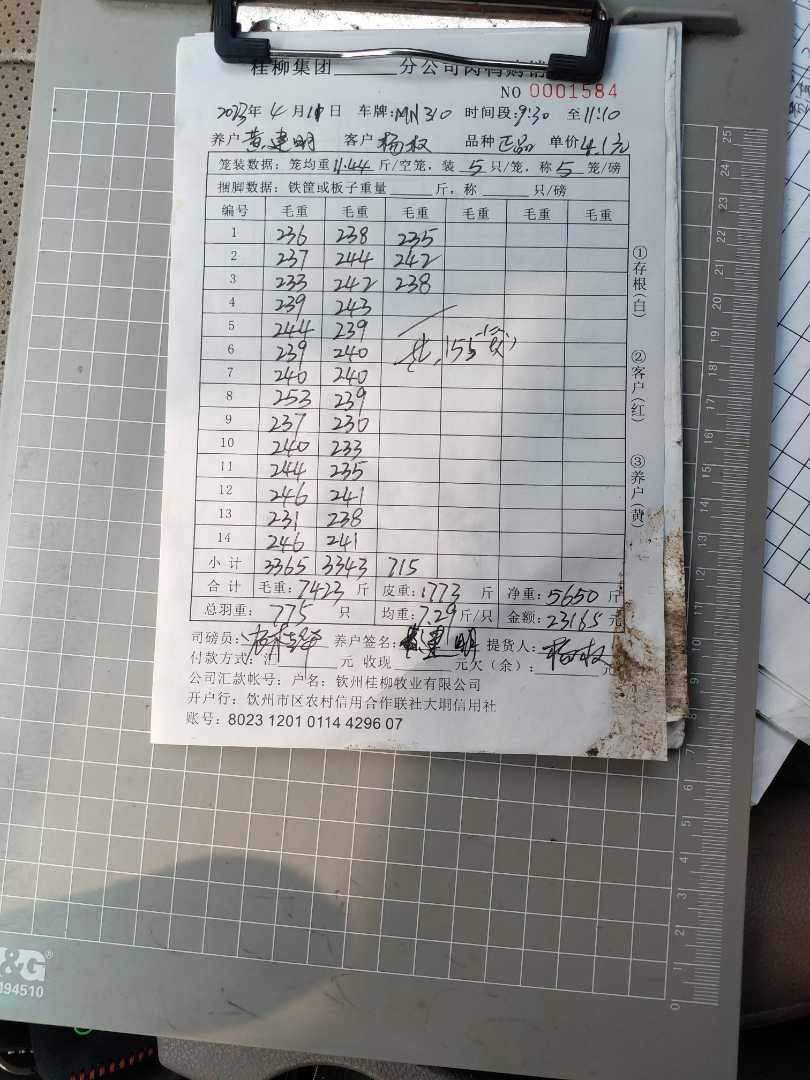 桂柳集团______分公司肉鸭购销
NO 0001584
2023年 4 月 10 日 车牌:MN310 时间段:9:30 至 11:10
养户 黄建明 客户 杨权 品种 正品 单价 4.1元
笼装数据: 笼均重 11.44 斤/空笼, 装 5 只/笼, 称 5 笼/磅
捆脚数据: 铁筐或板子重量______斤, 称______只/磅
编号 毛重 毛重 毛重 毛重 毛重 毛重
1 236 238 235
2 237 244 242
3 233 242 238
4 239 243
5 244 239
6 239 240 155
7 240 240
8 253 239
9 237 230
10 240 233
11 244 235
12 246 241
13 231 238
14 246 241
小计 3365 3343 715
合计 毛重: 7423 斤 皮重: 1773 斤 净重: 5650 斤
总羽重: 775 只 均重: 7.29 斤/只 金额: 23165 元
司磅员: 养户签名: 黄建明 提货人: 杨权
付款方式: 汇______元 收现______元欠(余): ______元
公司汇款帐号: 户名: 钦州桂柳牧业有限公司
开户行: 钦州市区农村信用合作联社大垌信用社
账号: 8023 1201 0114 4296 07
①存根(白) ②客户(红) ③养户(黄)
25
24
23
22
21
20
19
18
17
16
15
14
13
12
11
10
9
8
7
6
5
4
3
2
1
0
&G®
94510